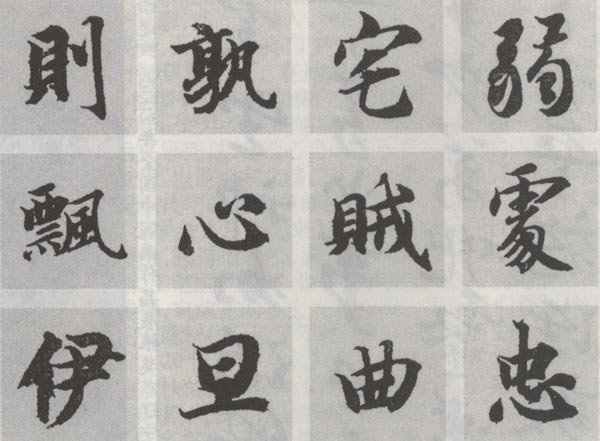 則 孰 宅 弱
飄 心 賊
伊 旦 曲 忠